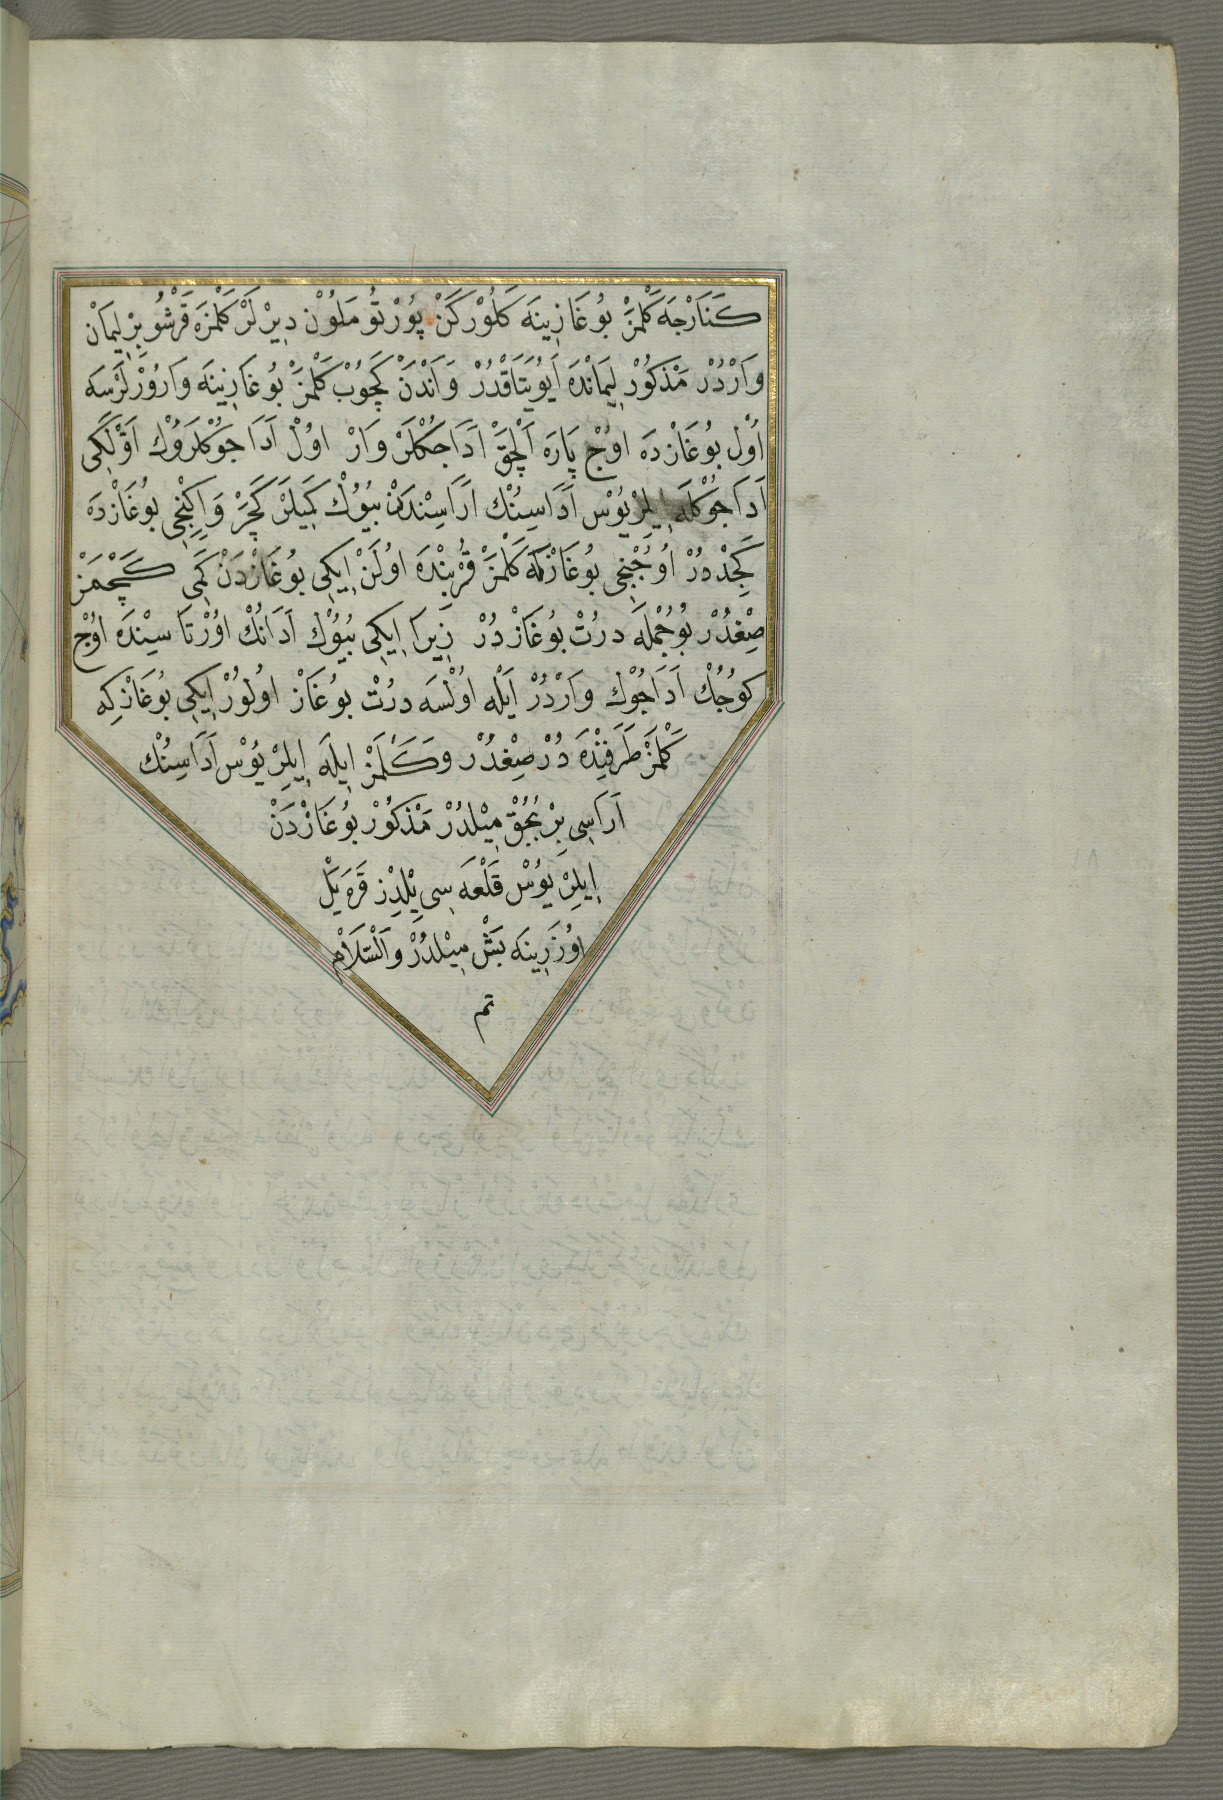 كَنَارْجَه كَلْمَزْ بُوغَازِينَه كَلُورْكَنْ پُورْتُو مَلُونْ دِيرْلَرْ كَلْمَزَه قَرْشُو بِرْ لِيمَانْ
وَارْدُرْ مَذْكُورْ لِيمَانْدَه اَيُو يَتَاقْدُرْ وَاَنْدَنْ كَچُوبْ كَلْمَزْ بُوغَازِينَه وَارُورْلَرْسَه
اُولْ بُوغَازْدَه اوُچْ پَارَه اَلْچَقْ اَدَاجِكْلَرْ وَارْ اوُلْ اَدَاجُوكْلَرُوكْ اَوَّلْكِى
اَدَاجُوكْلَه اِيلِرْيُوسْ اَدَاسِنُكْ اَرَاسِنْدَنْ بُيُوكْ كَمِيلَرْ كَچَرْ وَاِيكِنْجِى بُوغَازْدَه
كَچِدْدُرْ اوُچُنْجِى بُوغَازْكَه كَلْمَزْ قُرْبِنْدَه اوُلَنْ اِيكِى بُوغَازْدَنْ كَمِى كَچْمَزْ
صِغْدُرْ بُوجُمْلَه دَرُتْ بُوغَازْدُرْ زِيرَا اِيكِى بُيُوكْ اَدَانُكْ اوُرْتَاسِينْدَه اوُچْ
كُوچُكْ اَدَاجُوكْ وَارْدُرْ اَيْلَه اوُلْسَه دَرُتْ بُوغَازْ اوُلُورْ اِيكِى بُوغَازْكِه
كَلْمَزْ طَرَفِنْدَه دُرْ صِغْدُرْ وَكَلْمَزْ اِيلَه اِيلِرْيُوسْ اَدَاسِنُكْ
اَرَاسِى بِرْ بُچُقْ مِيْلْدُرْ مَذْكُورْ بُوغَازْدَنْ
اِيلِرْيُوسْ قَلْعَه سِى يِلْدِزْ قَرَه يَلْ
اوُزَرِينَه بَشْ مِيْلْدُرْ وَالسَّلَامْ
تم